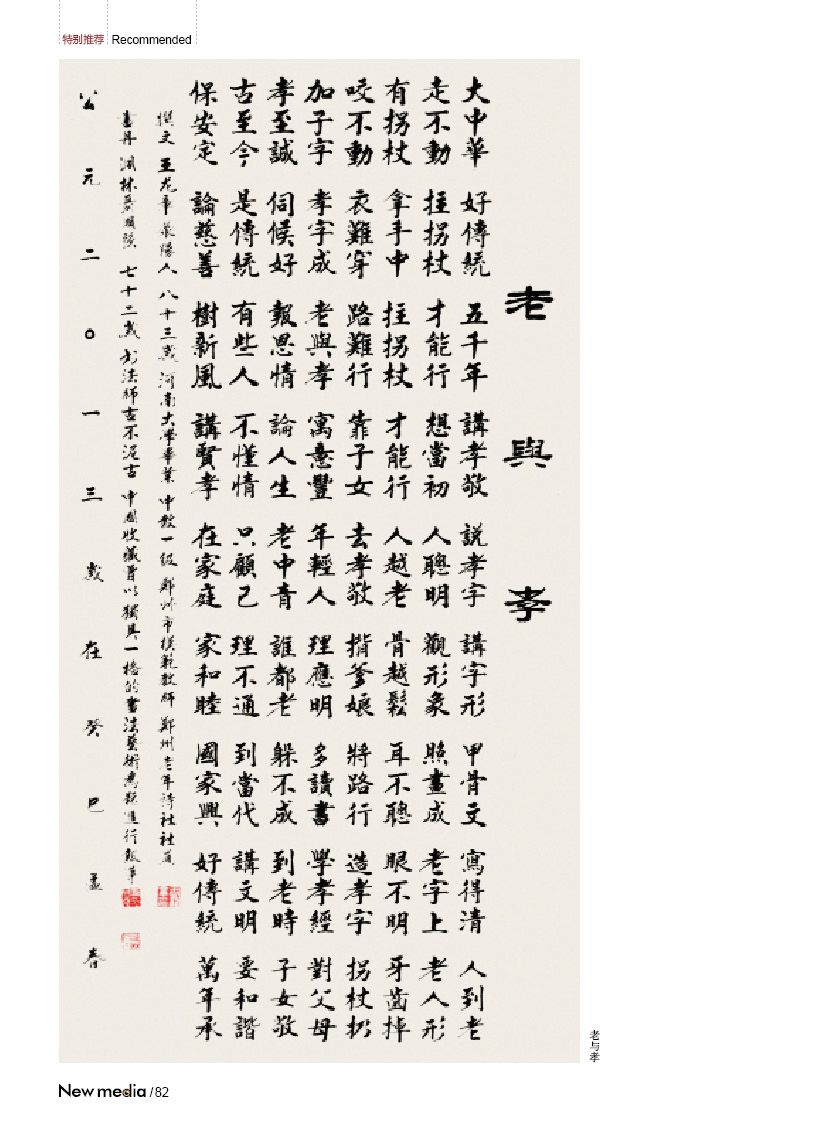 特别推荐 Recommended
老與孝
大中華 好傳統 五千年 講孝敬 説孝字 講字形 甲骨文 寫得清 人到老
走不動 拄拐杖 才能行 想當初 人聰明 觀形象 照畫成 老字上 老人形
有拐杖 拿手中 拄拐杖 才能行 人越老 骨越鬆 耳不聰 眼不明 牙齒掉
咬不動 衣難穿 路難行 靠子女 去孝敬 揹爹娘 將路行 造孝字 拐杖扔
加子字 孝字成 老與孝 寓意豐 年輕人 理應明 多讀書 學孝經 對父母
孝至誠 伺候好 報恩情 論人生 老中青 誰都老 躲不成 到老時 子女敬
古至今 是傳統 有些人 不懂情 只顧己 理不通 到當代 講文明 要和諧
保安定 論慈善 樹新風 講賢孝 在家庭 家和睦 國家興 好傳統 萬年承
撰文 王龙章 荥陽人 八十三歲 河南大學畢業 中教一级 鄭州市模範教師 鄭州老年詩社社員
書丹 七十二歲 書法師古不泥古 中國收藏曾以獨具一格的書法藝術為題進行報導
公元二〇一三歲在癸巳孟春
老与孝
New media /82